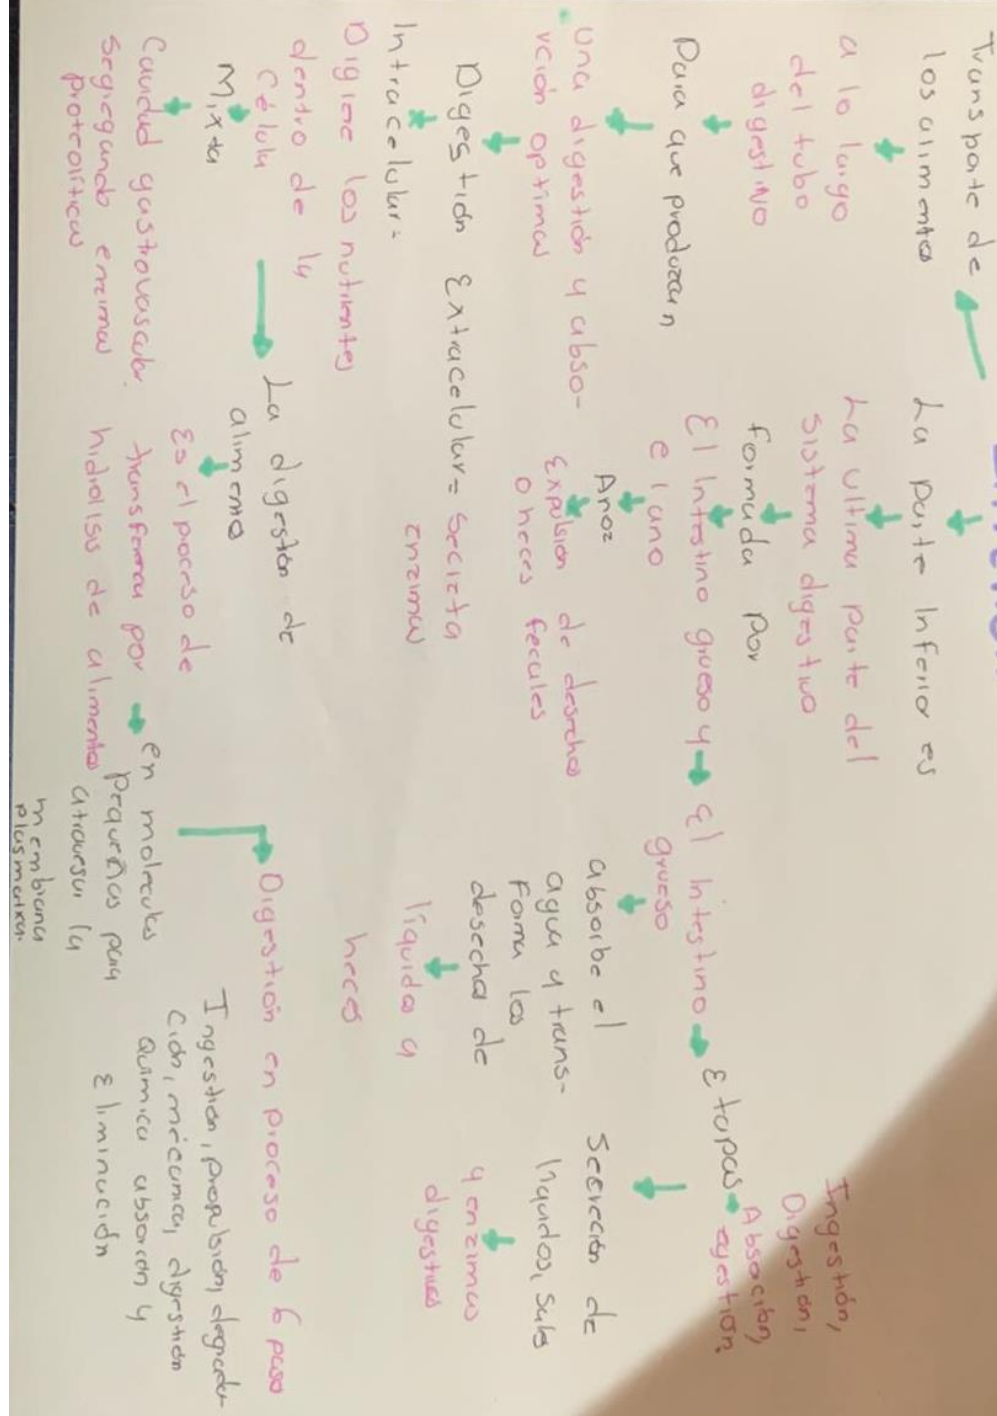 Transporte de
los alimentos
a lo largo
del tubo
digestivo
Para que produzcan
una digestión y abso-
rción optimas
Digestión Extracelular= Secreta
enzimas
Intracelular-
Digiere los nutrientes
dentro de la
célula
Mixta
Cavidad gastrovascular.
Segregando enzimas
proteolíticas
La parte Inferior es
La ultima parte del
sistema digestivo
formada por
El Intestino grueso y
el ano
Ano=
Expulsion de desechos
o heces fecales
La digestión de
alimento
Es el proceso de
transforma por
hidrolisis de alimentos
en moleculas
pequeñas para
atravesar la
membrana
plasmatica.
El intestino
grueso
absorbe el
agua y trans-
Forma los
desechos de
líquidos a
heces
Etapas
Ingestión,
Digestión,
Absoción,
egestion.
Secreción de
líquidos, sales
y enzimas
digestivas
Digestión en proceso de 6 paso
Ingestión, propulsión, degrada-
ción, mécanica, digestion
Quimica absorcion y
Eliminación